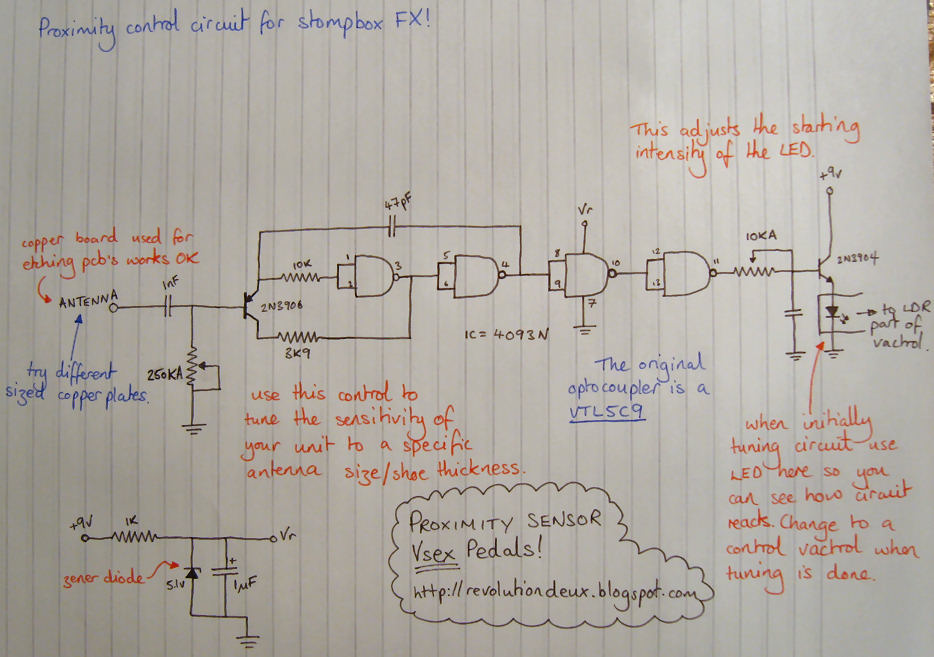 Proximity control circuit for stompbox FX!
This adjusts the starting
intensity of the LED.
+9v
47pF
Vr
copper board used for
etching pcb's works OK
10KA
2N3904
ANTENNA
1nF
2N3906
10K
1
2
3
5
6
4
8
9
10
7
12
13
11
3K9
IC = 4093N
→ to LDR
part of
vactrol.
try different
sized copper plates.
250KA
The original
optocoupler is a
VTL5C9
use this control to
tune the sensitivity of
your unit to a specific
antenna size/shoe thickness.
when initially
tuning circuit use
LED here so you
can see how circuit
reacts. Change to a
control vactrol when
tuning is done.
+9v
1K
Vr
zener diode
5.1v
+
1µF
PROXIMITY SENSOR
Vsex Pedals!
http://revolutiondeux.blogspot.com